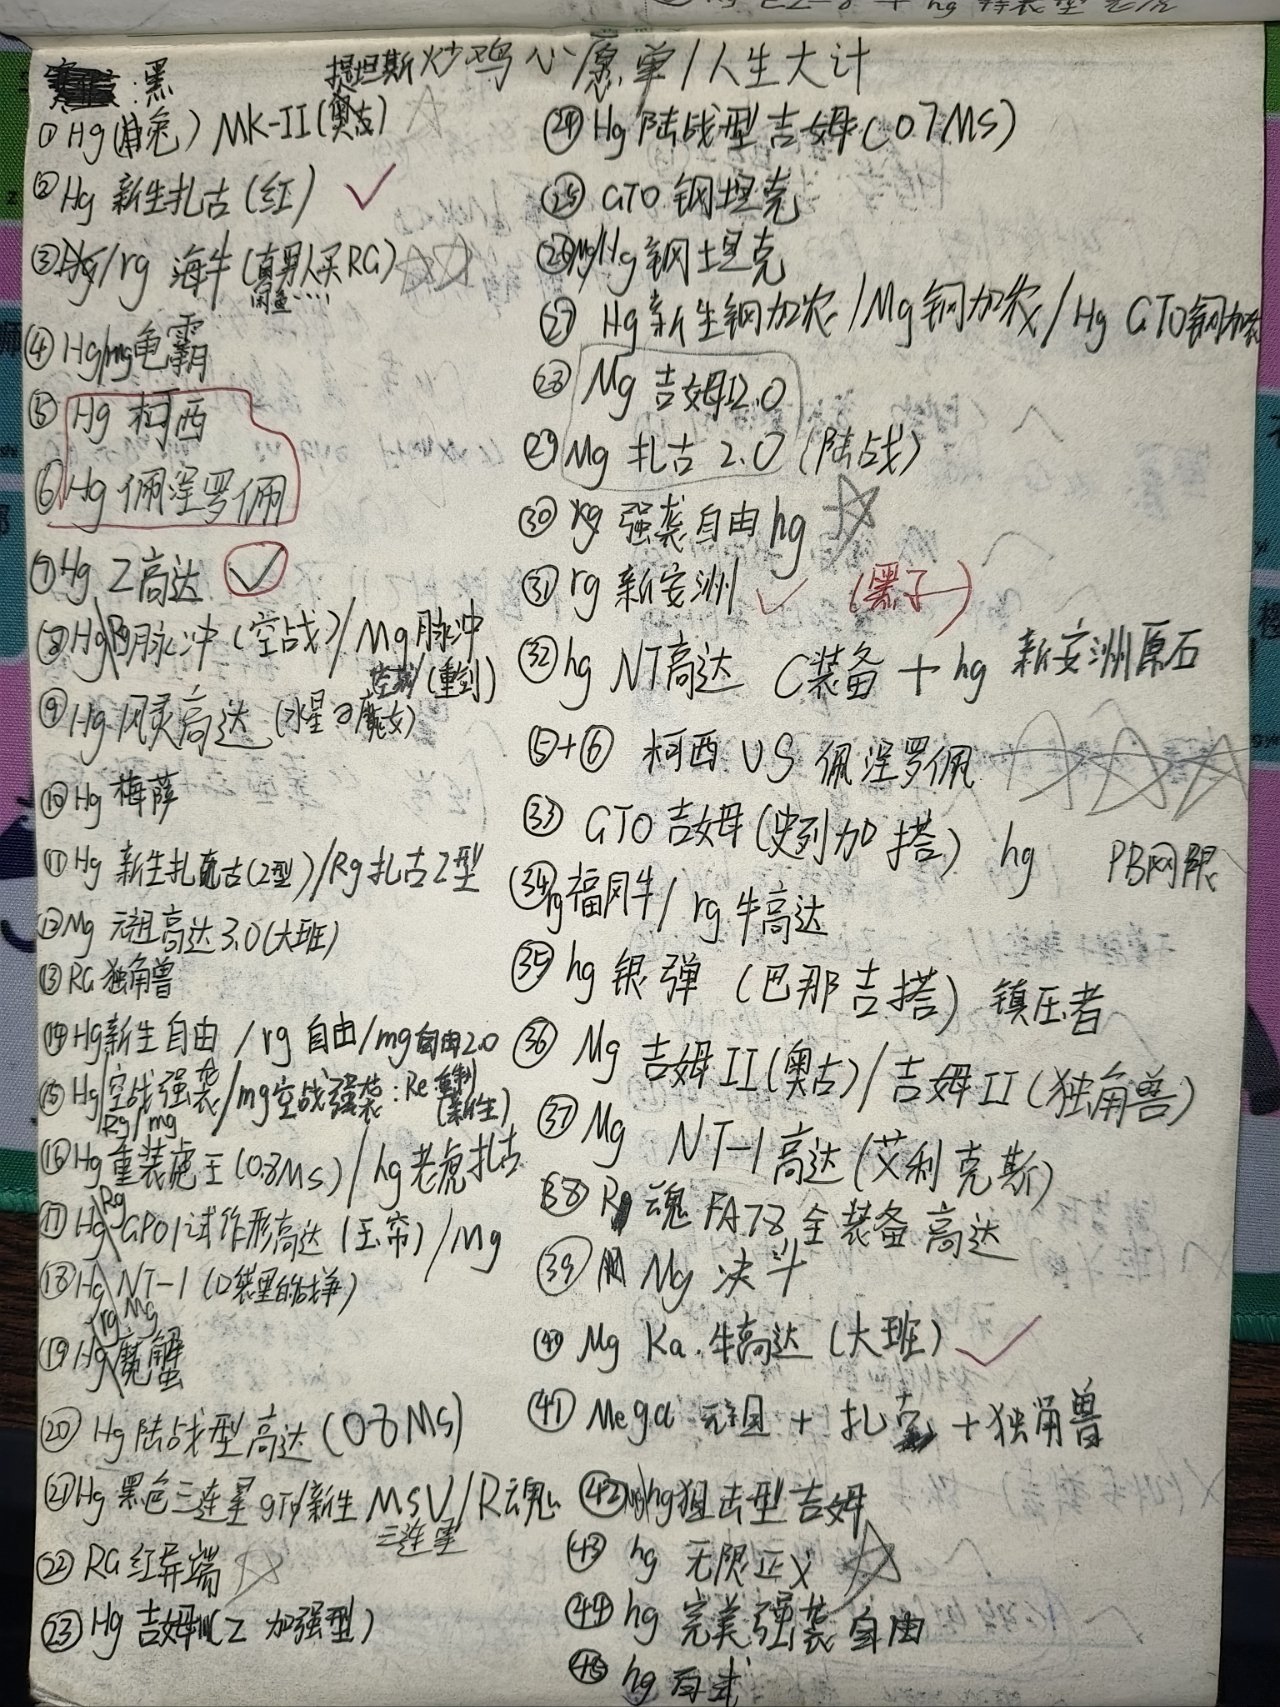 :黑
提坦斯 炒鸡心愿单/人生大计
① Hg() MK-II(奥古)
② Hg 新生扎古(红) ✓
③ /rg 海牛(真男人买RG)
闲鱼····
④ Hg/mg龟霸
⑤ Hg 柯西
⑥ Hg 佩涅罗佩
⑦ Hg Z高达 ✓
⑧ Hg\Rg脉冲(空战)/Mg脉冲
空战/(重剑)
⑨ Hg 风灵高达(水星の魔女)
⑩ Hg 梅萨
⑪ Hg 新生扎古(Z型)/Rg扎古Z型
⑫ Mg 元祖高达3.0(大班)
⑬ RG 独角兽
⑭ Hg新生自由 /rg 自由/mg自由2.0
⑮ Hg/空战强袭/mg空战强袭:Re重制
Rg/mg (新生)
⑯ Hg 重装魔王(0.8MS)/hg老虎扎古
⑰ Hg\Rg GP01试作形高达(玉帘)/Mg
⑱ Hg\NT-1(口袋里的战争)
rg Mg
⑲ Hg\魔蟹
⑳ Hg 陆战型高达(08MS)
㉑ Hg 黑色三连星 gto/新生 MSV/R魂
三连星
㉒ RG 红异端
㉓ Hg 吉姆III(Z 加强型)
㉔ Hg 陆战型吉姆(07MS)
㉕ GTO 钢坦克
㉖ Mg/Hg 钢坦克
㉗ Hg 新生钢加农/Mg 钢加农/Hg GTO钢加农
㉘ Mg 吉姆2.0
㉙ Mg 扎古 2.0 (陆战)
㉚ rg 强袭自由 hg
㉛ rg 新安洲 ✓ (黑子)
㉜ hg NT高达 C装备 + hg 新安洲原石
⑤+⑥ 柯西 VS 佩涅罗佩
㉝ GTO吉姆(史列加 搭) hg PB网限
㉞ rg福冈牛/ rg 牛高达
㉟ hg 银弹 (巴那吉搭) 镇压者
㊱ Mg 吉姆II(奥古)/吉姆II(独角兽)
㊲ Mg NT-1高达(艾利克斯)
㊳ R 魂 FA78 全装备高达
㊴ Mg 决斗
㊵ Mg Ka.牛高达(大班) ✓
㊶ Mega 元祖 + 扎 + 独角兽
㊷ Mg/hg狙击型吉姆
㊸ hg 无限正义
㊹ hg 完美强袭自由
㊺ hg 百式